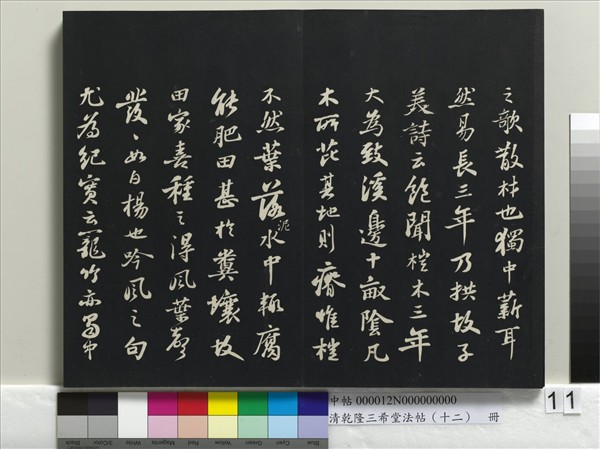 之欹散材也獨中薪耳
然易長三年乃拱故子
美詩云飽聞榿木三年
大為致溪邊十畝陰凡
木所芘其地則瘠惟榿
不然葉落泥水中輒腐
能肥田甚於糞壤故
田家喜種之得風葉聲
發〻如白楊也吟風之句
尤為紀實云籠竹亦蜀中
中帖 000012N000000000
清乾隆三希堂法帖（十二） 冊
11
Blue Cyan Green Yellow Red Magenta White 3/Color Black